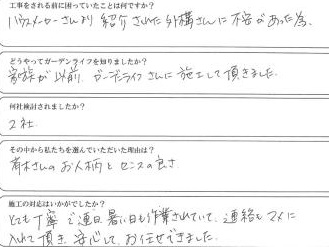 工事をされる前に困っていたことは何ですか？
ハウスメーカーさんより紹介された外構さんに不安があった為。
どうやってガーデンライフを知りましたか？
家族が以前、ガーデンライフさんに施工して頂きました。
何社検討されましたか？
2社
その中から私たちを選んでいただいた理由は？
青木さんのお人柄とセンスの良さ
施工の対応はいかがでしたか？
とても丁寧で連日暑い日も作業されていて、連絡もマメに
入れて頂き、安心して、お任せできました。